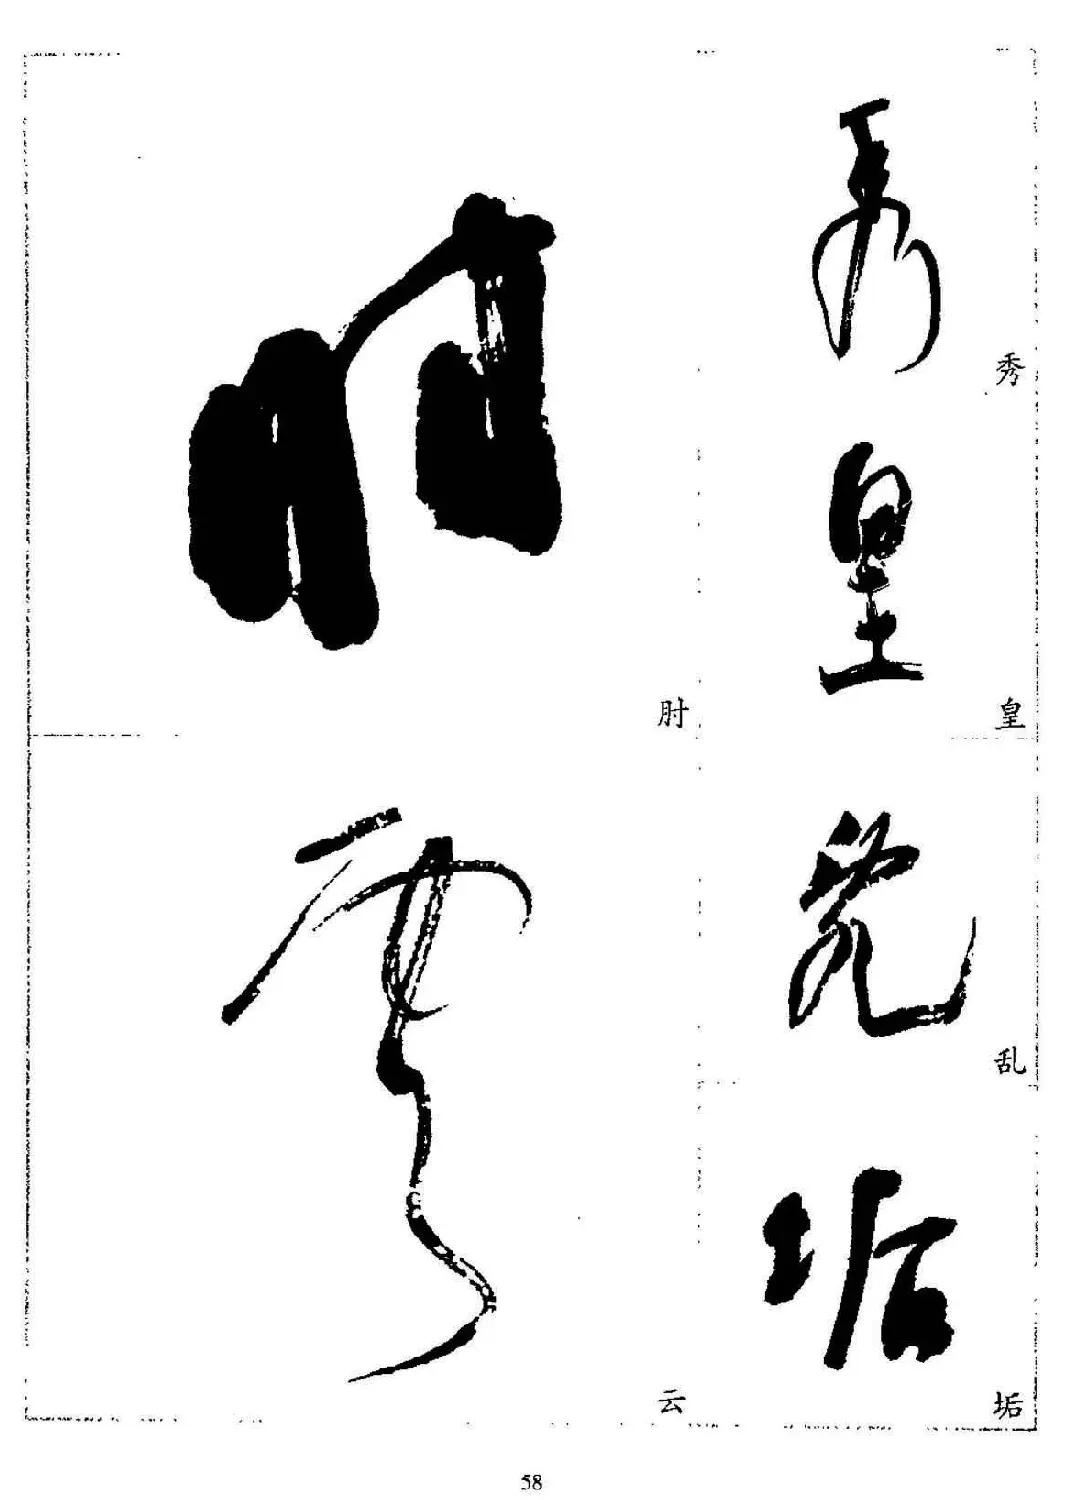 秀
皇
乱
垢
肘
云
58